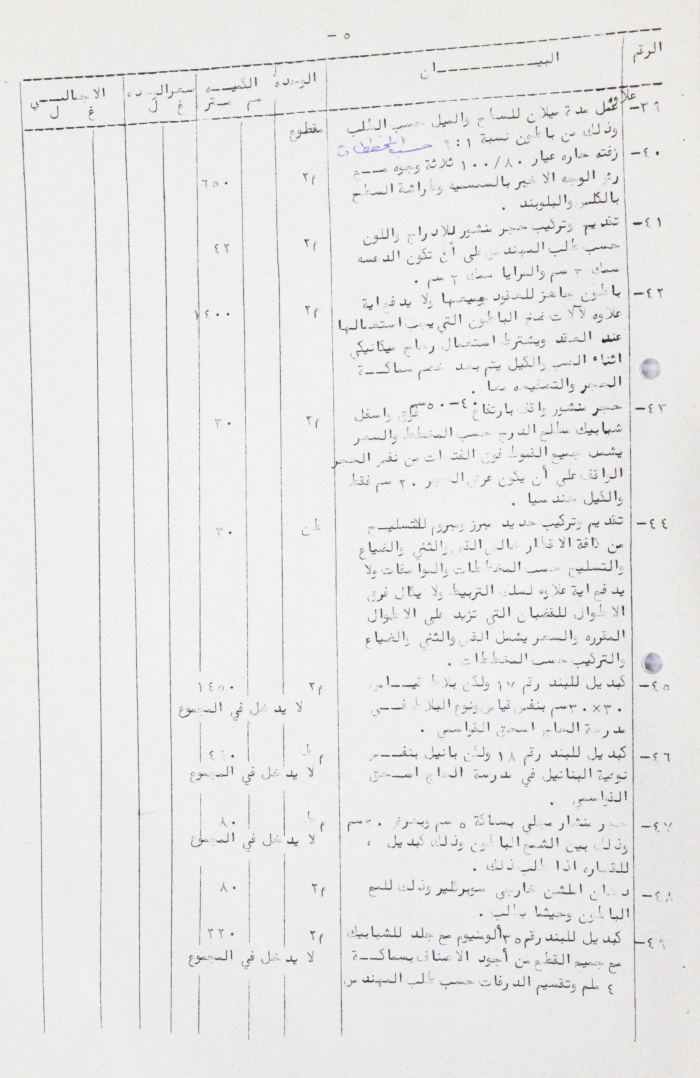 - ٥
الرقم البيـــــــــان الوحده الكميـــه سعر الوحده الاجمالـــي
س م ستر غ ل غ ل
علاوه
٣٩- عمل مدة ميلان للسطح والميل حسب الطلب مقطوع
وذلك من باطون نسبة ١ : ٦ حسب المخططات
٤٠- زفته حاره عيار ١٠٠/٨٠ ثلاثة وجوه مـــع م٢ ٦٥٠
رش الوجه الاخير بالسمسميه وطراشة السطح
بالكلس والبلوبند .
٤١- تقديم وتركيب حجر منشور للادراج واللون م٢ ٤٢
حسب طلب المهندس على أن تكون الدعسه
سمك ٣ سم والمرايا سمك ٢ سم .
٤٢- باطون جاهز للعقود جميعها ولا يدفع اية م٢ ١٤٠٠
علاوه لآلات ضخ الباطون التي يجب استعمالها
عند العقد ويشترط استعمال رجاج ميكانيكي
اثناء الصب والكيل يتم بعد خصم سماكـــة
الحجر والتصفيحه معا .
٤٣- حجر منشور واقف بارتفاع ٤٠-٥٠سم فوق واسفل م٢ ٣٠
شبابيك مطالع الدرج حسب المخطط والسعر
يشمل جميع القموط فوق الفتحات من نفس الحجر
الواقف على أن يكون عرض الحجر ٢٠ سم فقط
والكيل هندسيا .
٤٤- تقديم وتركيب حديد مبرز ومبروم للتسليـــح طن ٣٠
من كافة الاقطار خالص القص والثني والضياع
والتسليح حسب المخططات والمواصفات ولا
يدفع اية علاوه لسلك التربيط ولا يكال فرق
الاطوال للقضبان التي تزيد على الاطوال
المقرره والسعر يشمل القص والثني والضياع
والتركيب حسب المخططات .
٤٥- كبديل للبند رقم ١٧ ولكن بلاط قيـــاس م٢ ١٤٥٠
٣٠×٣٠سم بنفس قياس ونوع البلاط فـــي لا يدخل في المجموع
مدرسة الحاج اسحق القواسمي .
٤٦- كبديل للبند رقم ١٨ ولكن بانيل بنفـــس م ط
نوعية البنانيل في مدرسة الحاج اســحق لا يدخل في المجموع
القواسمي .
٤٧- حجر منشار مجلي بسماكة ٥ سم وبعرض ٢٠سم م ط ٨٠
وذلك بين الشمع الباطون وذلك كبديل لا يدخل في المجموع
للقصاره اذا طلب ذلك .
٤٨- دهان املشن خارجي سوبركلير وذلك للمع م٢ ٨٠
الباطون وحيثما يطلب .
٤٩- كبديل للبند رقم ٣٥ ألومنيوم مع جلد للشبابيك م٢ ٢٢٠
مع جميع القطع من أجود الاصناف بسماكـــة لا يدخل في المجموع
٤ ملم وتقسيم الدرفات حسب طلب المهندس